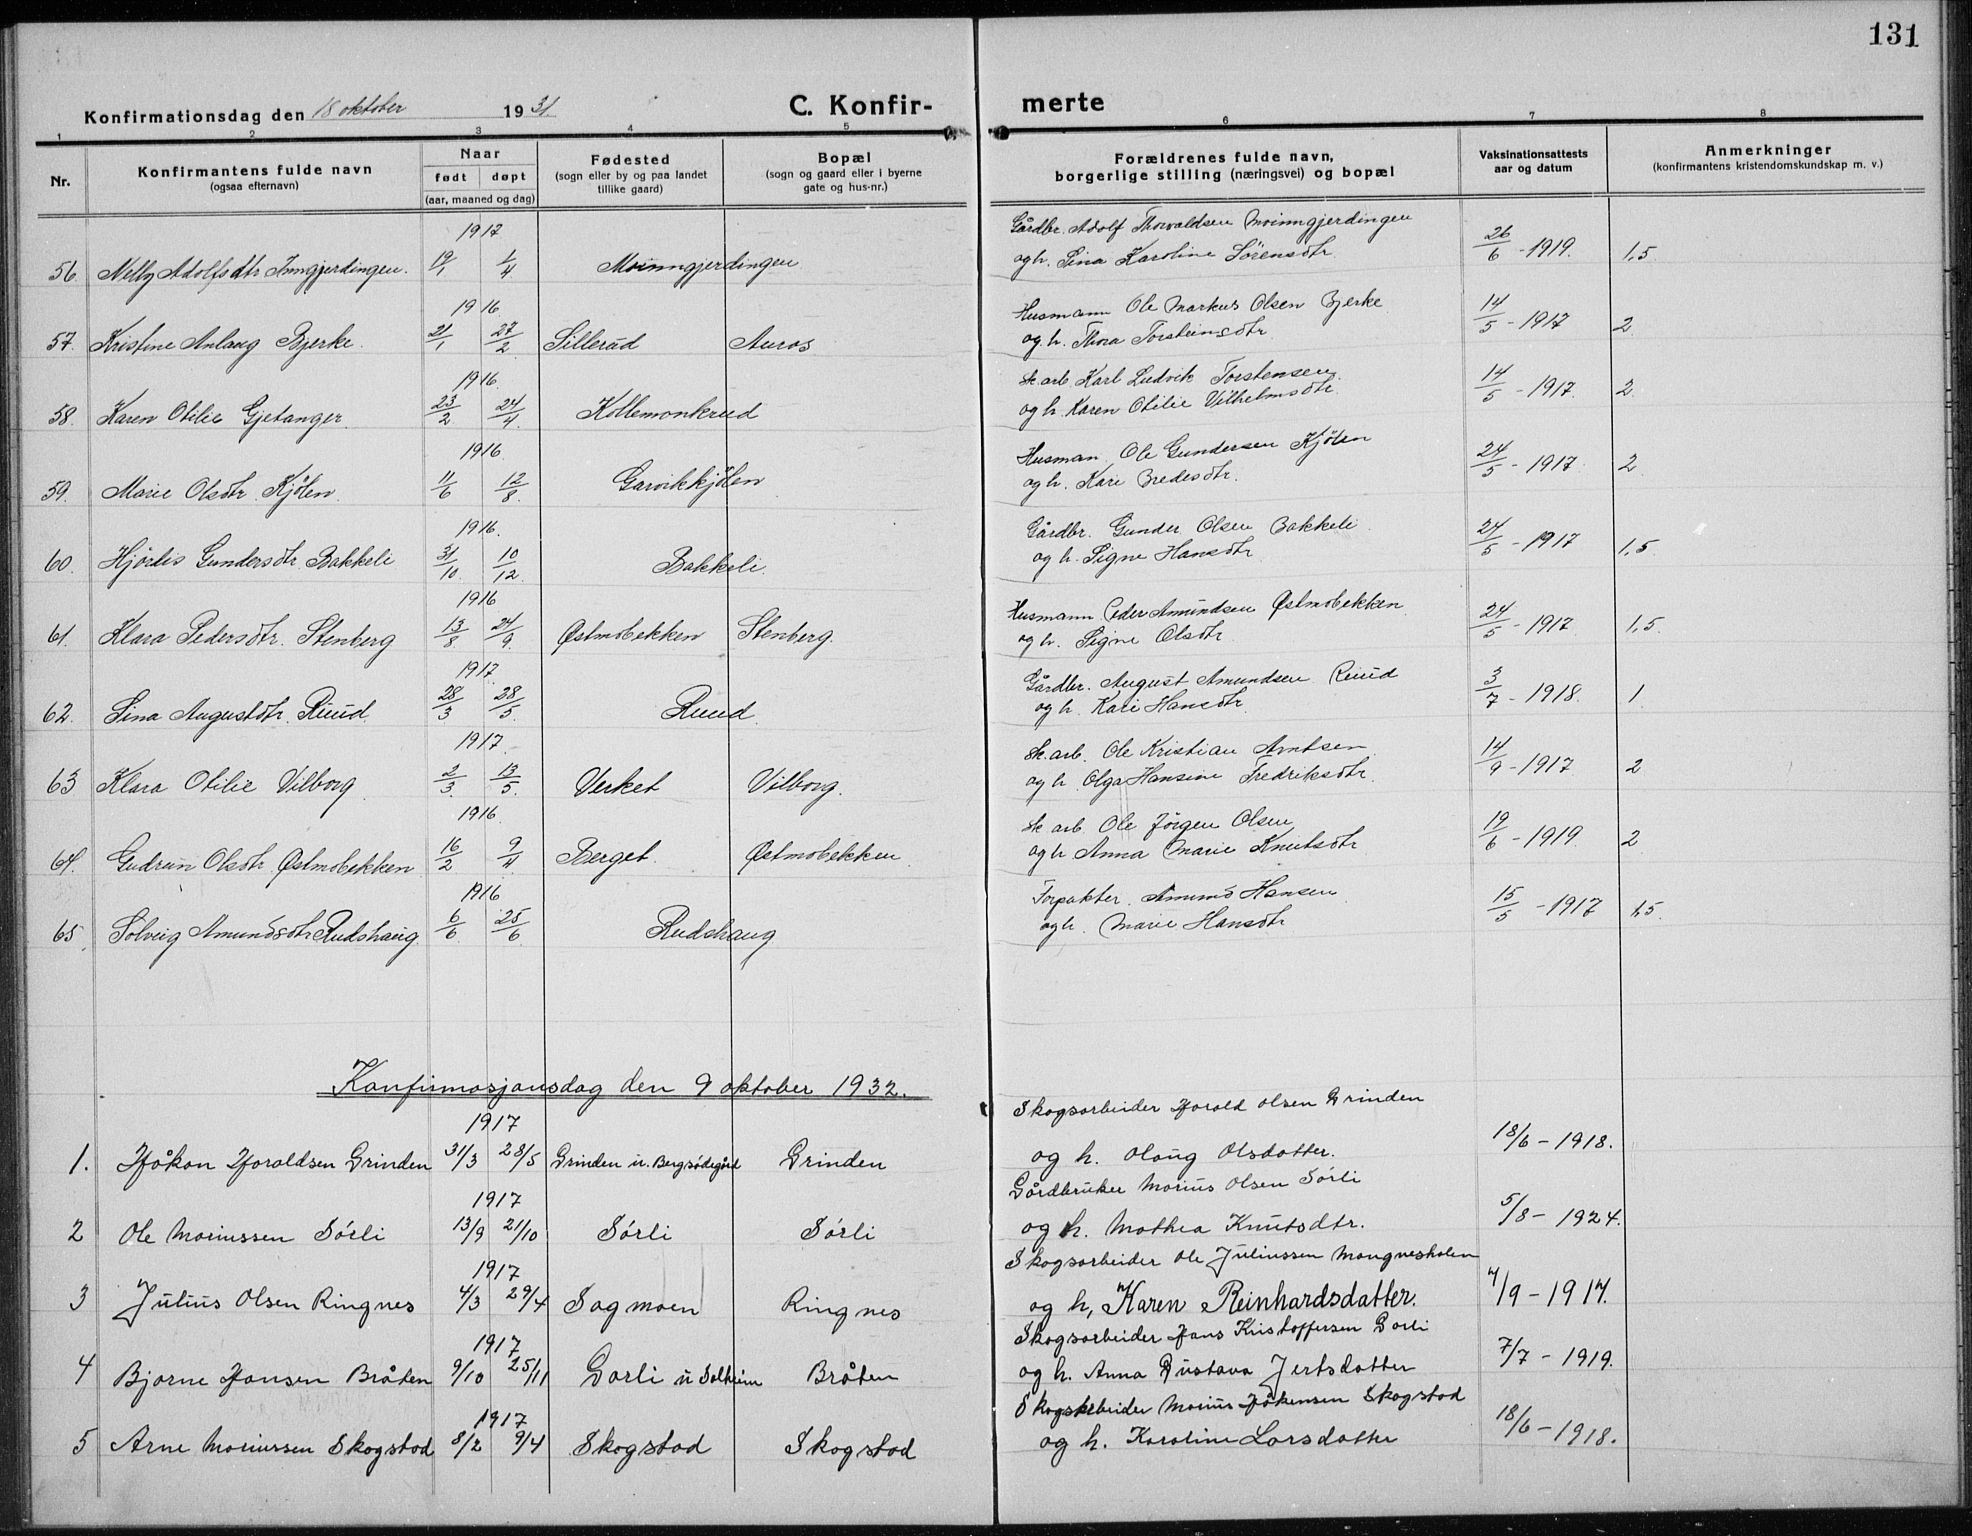 131
Konfirmationsdag den 18 oktober 1931.
C. Konfirmerte
1 2 3 4 5 6 7 8
Nr.
Konfirmantens fulde navn
(ogsaa efternavn)
Naar
født døpt
(aar, maaned og dag)
Fødested
(sogn eller by og paa landet
tillike gaard)
Bopæl
(sogn og gaard eller i byerne
gate og hus-nr.)
Forældrenes fulde navn,
borgerlige stilling (næringsvei) og bopæl
Vaksinationsattests
aar og datum
Anmerkninger
(konfirmantens kristendomskundskap m. v.)
1917
Gårdbr. Adolf Thorvaldsen Moinngjerdingen
56. Nelly Adolfsdtr Inngjerdingen. 19/1 1/4 Moinngjerdingen og h. Sina Karoline Sörensdtr 26/6 - 1919. 1,5
1916
Husmann Ole Markus Olsen Bjerke
57. Kristine Anlaug Bjerke. 21/1 27/2 Sillerud Auros og h. Thora Torsteinsdtr 14/5 - 1917 2
1916
sk.arb. Karl Ludvik Torstensen
58. Karen Otilie Gjetanger. 23/2 24/4 Kollemonkrud og h. Karen Otilie Vilhelmsdtr. 14/5 - 1917. 2
1916.
Husman. Ole Gundersen Kjölen
59. Marie Olsdtr. Kjölen. 11/6 12/8. Garvikkjölen og h. Kari Bredesdtr. 24/5 - 1917. 2
1916.
Gårdbr. Gunder Olsen Bakkeli
60. Hjördis Gundersdtr. Bakkeli 31/10 10/12. Bakkeli. og h. Signe Hansdtr. 24/5 - 1917 1,5.
1916
Husmann Peder Amundsen Østmobekken
61. Klara Pedersdtr. Stenberg 13/8 24/9. Østmobekken Stenberg. og h. Signe Olsdtr. 24/5 - 1917 1,5.
1917.
Gårdbr. August Amundsen Ruud
62. Sina Augustdtr. Ruud. 28/3 28/5. Ruud. og h. Kari Hansdtr. 3/7 - 1918. 1.
1917.
sk.arb. Ole Kristian Arntsen
63 Klara Otilie Vilborg. 2/3. 13/5. Verket Vilborg. og h. Olga Hansine Fredriksdtr. 14/9 - 1917 2
1916.
sk arb Ole Jörgen Olsen
64. Gudrun Olsdtr. Østmobekken 16/2 9/4 Berget. Østmobekken. og h Anna Marie Knutsdtr. 19/6 - 1919. 2
1916
Forpakter. Amund Hansen
65. Solveig Amundsdtr Rudshaug 6/6. 25/6 Rudshaug og h. Marie Hansdtr 15/5 - 1917 1,5.
Konfirmasjonsdag den 9 oktober 1932.
1917
Skogsarbeider Harald Olsen Grinden
1. Håkon Haraldsen Grinden 31/3 28/5 Grinden u. Bergsödegård Grinden og h. Olaug Olsdatter. 18/6 - 1918.
1917
Gårdbruker Marius Olsen Sörli
2 Ole Mariussen Sörli 13/9 21/10 Sörli Sörli og h. Mathea Knutsdtr. 5/8 - 1924.
1917
Skogsarbeider Ole Juliussen Mangnesholen
3 Julius Olsen Ringnes 4/3 29/4 Sagmoen Ringnes og h, Karen Reinhardsdatter. 4/9 - 1917.
1917
Skogsarbeider Hans Kristoffersen Garli
4 Bjarne Hansen Bråten 9/10 25/11 Garli u Solheim Bråten og h. Anna Gustava Jertsdatter 7/7 - 1919.
1917
Skogsarbeider Marius Håkensen Skogstad
5 Arne Mariussen Skogstad 8/2 9/4 Skogstad Skogstad og h. Karoline Larsdatter 18/6 - 1918.